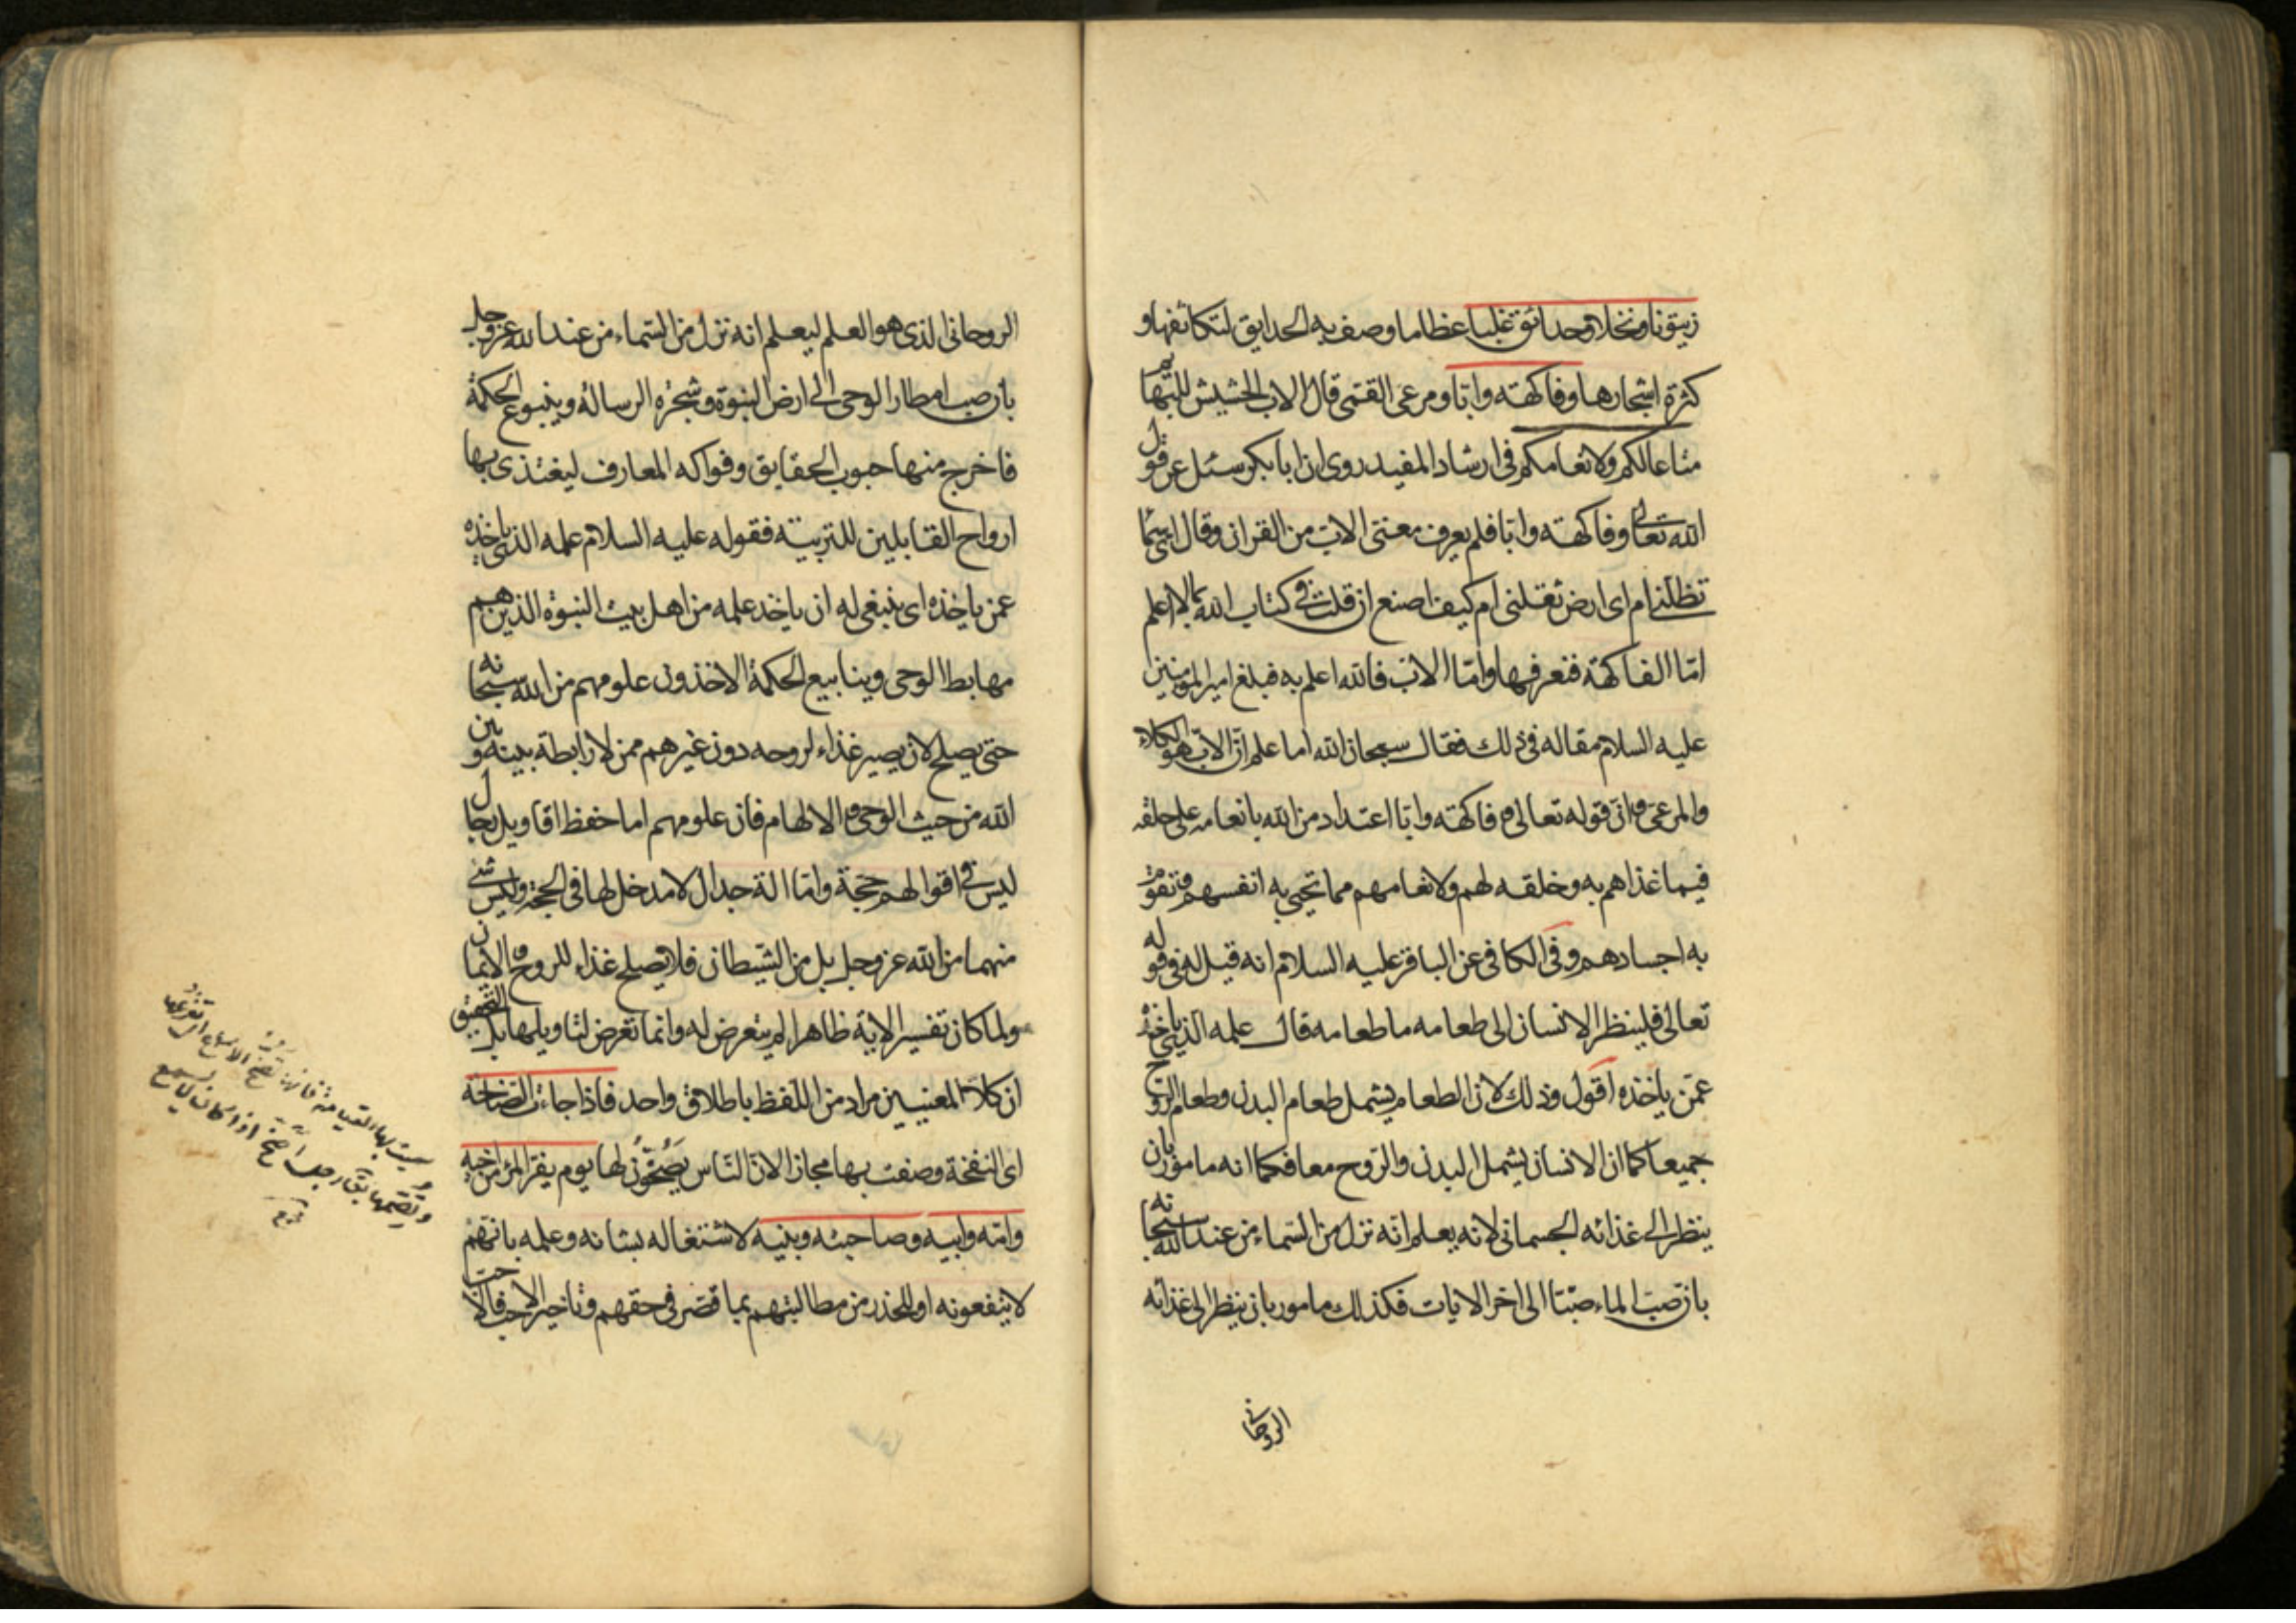 زيتونا ونخلا وحدائق غلبا عظاما وصف به الحدايق لتكاثفها و
كثرة اشجارها وفاكهة وابّا ومرعى القمّى قال الابّ الحشيش للبهايم
متاعا لكم ولانعامكم فى ارشاد المفيد روى ان ابا بكر سئل عن قول
الله تعالى وفاكهة وابّا فلم يعرف معنى الابّ من القران وقال اىّ سماء
تظلّنى ام اى ارض تقلنى ام كيف اصنع ان قلت فى كتاب الله بما لا اعلم
امّا الفاكهة فنعرفها وامّا الابّ فالله اعلم به فبلغ امير المؤمنين
عليه السلام مقاله فى ذلك فقال سبحان الله اما علم انّ الابّ هو الكلاء
والمرعى وانّ قوله تعالى وفاكهة وابّا اعتداد من الله بانعامه على خلقه
فيما غذاهم به وخلقه لهم ولانعامهم مما تحيى به انفسهم وتقوم
به اجسادهم وفى الكافى عن الباقر عليه السلام انه قيل له فى قوله
تعالى فلينظر الانسان الى طعامه ما طعامه قال علمه الذى ياخذه
عمّن ياخذه اقول وذلك لان الطعام يشمل طعام البدن وطعام الروح
جميعا كما ان الانسان يشمل البدن والرّوح معا فكما انه مامور بان
ينظر الى غذائه الجسمانى لانه يعلم انّه نزل من السّماء من عند الله سبحانه
بان صبّ الماء صبّا الى اخر الايات فكذلك مامور بان ينظر الى غذائه
الروحانى
الروحانى الذى هو العلم ليعلم انه نزل من السّماء من عند الله عز وجل
بان صب امطار الوحى الى ارض النبوة وشجرة الرسالة وينبوع الحكمة
فاخرج منها حبوب الحقايق وفواكه المعارف ليغتذى بها
ارواح القابلين للتربية فقوله عليه السلام علمه الذى ياخذه
عمن ياخذه اى ينبغى له ان ياخذ علمه من اهل بيت النبوة الذين هم
مهابط الوحى وينابيع الحكمة الاخذون علومهم من الله سبحانه
حتى يصلح لان يصير غذاء لروحه دون غيرهم ممن لا رابطة بينه وبين
الله من حيث الوحى والالهام فان علومهم اما حفظ اقاويل رجال
ليس فى اقوالهم حجة وامّا الة جدال لا مدخل لها فى الحجة وليس شئ
منهما من الله عز وجل بل من الشيطان فلا يصلح غذاء للروح والايمان
ولما كان تفسير الاية ظاهرا لم يتعرض له وانما تعرض لتاويلها بل التحقيق
ان كلا المعنيين مراد من اللفظ باطلاق واحد فاذا جاءت الصّاخّة
اى النفخة وصفت بها مجازا لانّ النّاس يصخّون لها يوم يفرّ المرء من اخيه
وامّه وابيه وصاحبته وبنيه لاشتغاله بشانه وعلمه بانهم
لا ينفعونه او للحذر من مطالبتهم بما قصّر فى حقهم وتاخير الاحب فالاحب